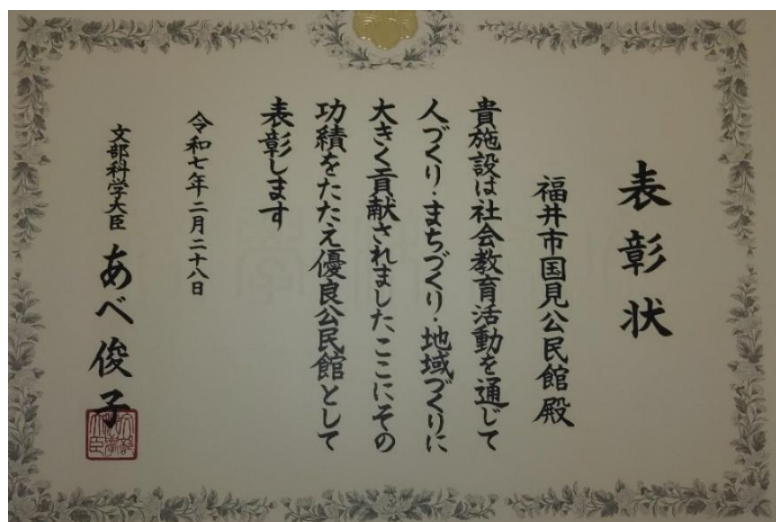 表彰状
福井市国見公民館殿
貴施設は社会教育活動を通じて
人づくり・まちづくり・地域づくりに
大きく貢献されました、ここにその
功績をたたえ優良公民館として
表彰します
令和七年二月二十八日
文部科学大臣 あべ俊子